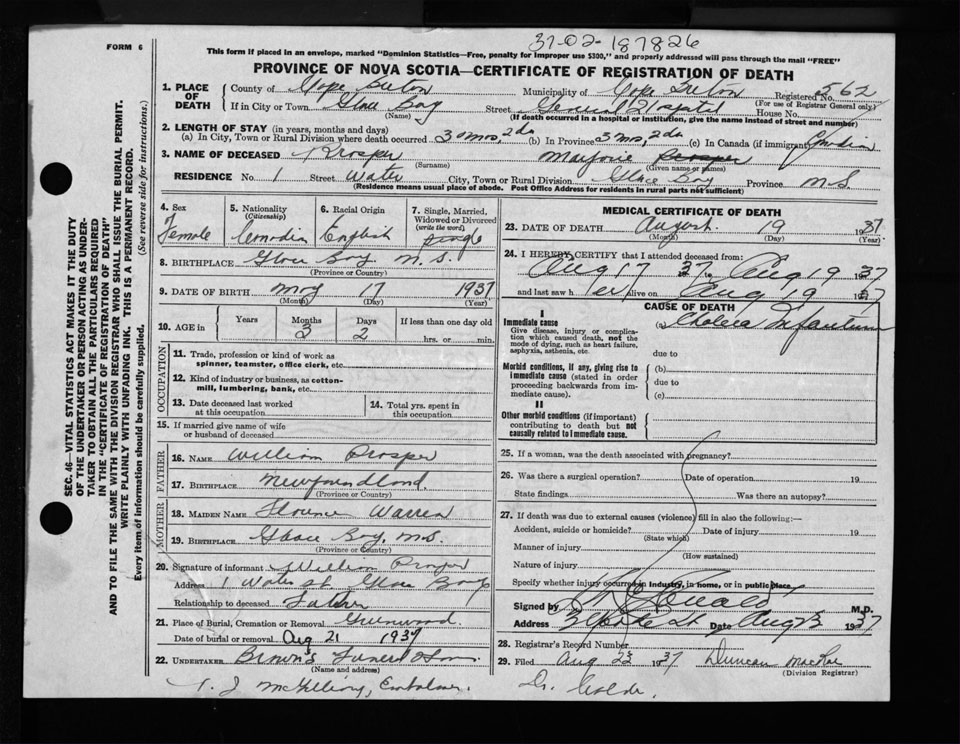 31-02-187826
FORM 6
This form if placed in an envelope, marked "Dominion Statistics—Free, penalty for improper use $300," and properly addressed will pass through the mail "FREE"
PROVINCE OF NOVA SCOTIA—CERTIFICATE OF REGISTRATION OF DEATH
SEC. 46—VITAL STATISTICS ACT MAKES IT THE DUTY
OF THE UNDERTAKER OR PERSON ACTING AS UNDER-
TAKER TO OBTAIN ALL THE PARTICULARS REQUIRED
IN THE "CERTIFICATE OF REGISTRATION OF DEATH"
AND TO FILE THE SAME WITH THE DIVISION REGISTRAR WHO SHALL ISSUE THE BURIAL PERMIT.
WRITE PLAINLY WITH UNFADING INK. THIS IS A PERMANENT RECORD.
Every item of information should be carefully supplied. (See reverse side for instructions.)
1. PLACE OF DEATH County of Cape Breton Municipality of Cape Breton Registered No. 562
(For use of Registrar General only)
If in City or Town Glace Bay Street General Hospital House No.
(Name) (If death occurred in a hospital or institution, give the name instead of street and number)
2. LENGTH OF STAY (in years, months and days)
(a) In City, Town or Rural Division where death occurred 3 mos, 2 ds (b) In Province 3 mos, 2 ds (c) In Canada (if immigrant) Canadian
3. NAME OF DECEASED Prosper Marjorie Prosper
(Surname) (Given name or names)
RESIDENCE No. 1 Street Water City, Town or Rural Division Glace Bay Province N.S.
(Residence means usual place of abode. Post Office Address for residents in rural parts not sufficient)
4. Sex 5. Nationality (Citizenship) 6. Racial Origin 7. Single, Married, Widowed or Divorced (write the word)
Female Canadian English Single
8. BIRTHPLACE Glace Bay N.S.
(Province or Country)
9. DATE OF BIRTH May 17 1937
(Month) (Day) (Year)
10. AGE in Years Months Days If less than one day old
3 2 hrs. or min.
OCCUPATION
11. Trade, profession or kind of work as
spinner, teamster, office clerk, etc.
12. Kind of industry or business, as cotton-
mill, lumbering, bank, etc.
13. Date deceased last worked
at this occupation
14. Total yrs. spent in
this occupation
15. If married give name of wife
or husband of deceased
FATHER
16. NAME William Prosper
17. BIRTHPLACE Newfoundland
(Province or Country)
MOTHER
18. MAIDEN NAME Florence Warren
19. BIRTHPLACE Glace Bay, N.S.
(Province or Country)
20. Signature of informant William Prosper
Address 1 Water St Glace Bay
Relationship to deceased Father
21. Place of Burial, Cremation or Removal Greenwood
Date of burial or removal Aug 21 1937
22. UNDERTAKER Brown's Funeral
(Name and address)
Embalmer.
MEDICAL CERTIFICATE OF DEATH
23. DATE OF DEATH August 19 1937
(Month) (Day) (Year)
24. I HEREBY CERTIFY that I attended deceased from:
Aug 17 37 to Aug 19 1937
and last saw her alive on Aug 19 1937
CAUSE OF DEATH
I
Immediate cause (a) Cholera Infantum
Give disease, injury or complica-
tion which caused death, not the
mode of dying, such as heart failure,
asphyxia, asthenia, etc.
due to
Morbid conditions, if any, giving rise to (b)
immediate cause (stated in order
proceeding backwards from im-
mediate cause).
due to
(c)
II
Other morbid conditions (if important)
contributing to death but not
causally related to immediate cause.
25. If a woman, was the death associated with pregnancy?
26. Was there a surgical operation? Date of operation 19
State findings Was there an autopsy?
27. If death was due to external causes (violence) fill in also the following:—
Accident, suicide or homicide? Date of injury 19
(State which)
Manner of injury
(How sustained)
Nature of injury
Specify whether injury occurred in industry, in home, or in public place
Signed by M.D.
Address Date Aug 1937
28. Registrar's Record Number
29. Filed Aug 23 1937 Duncan MacRae
(Division Registrar)